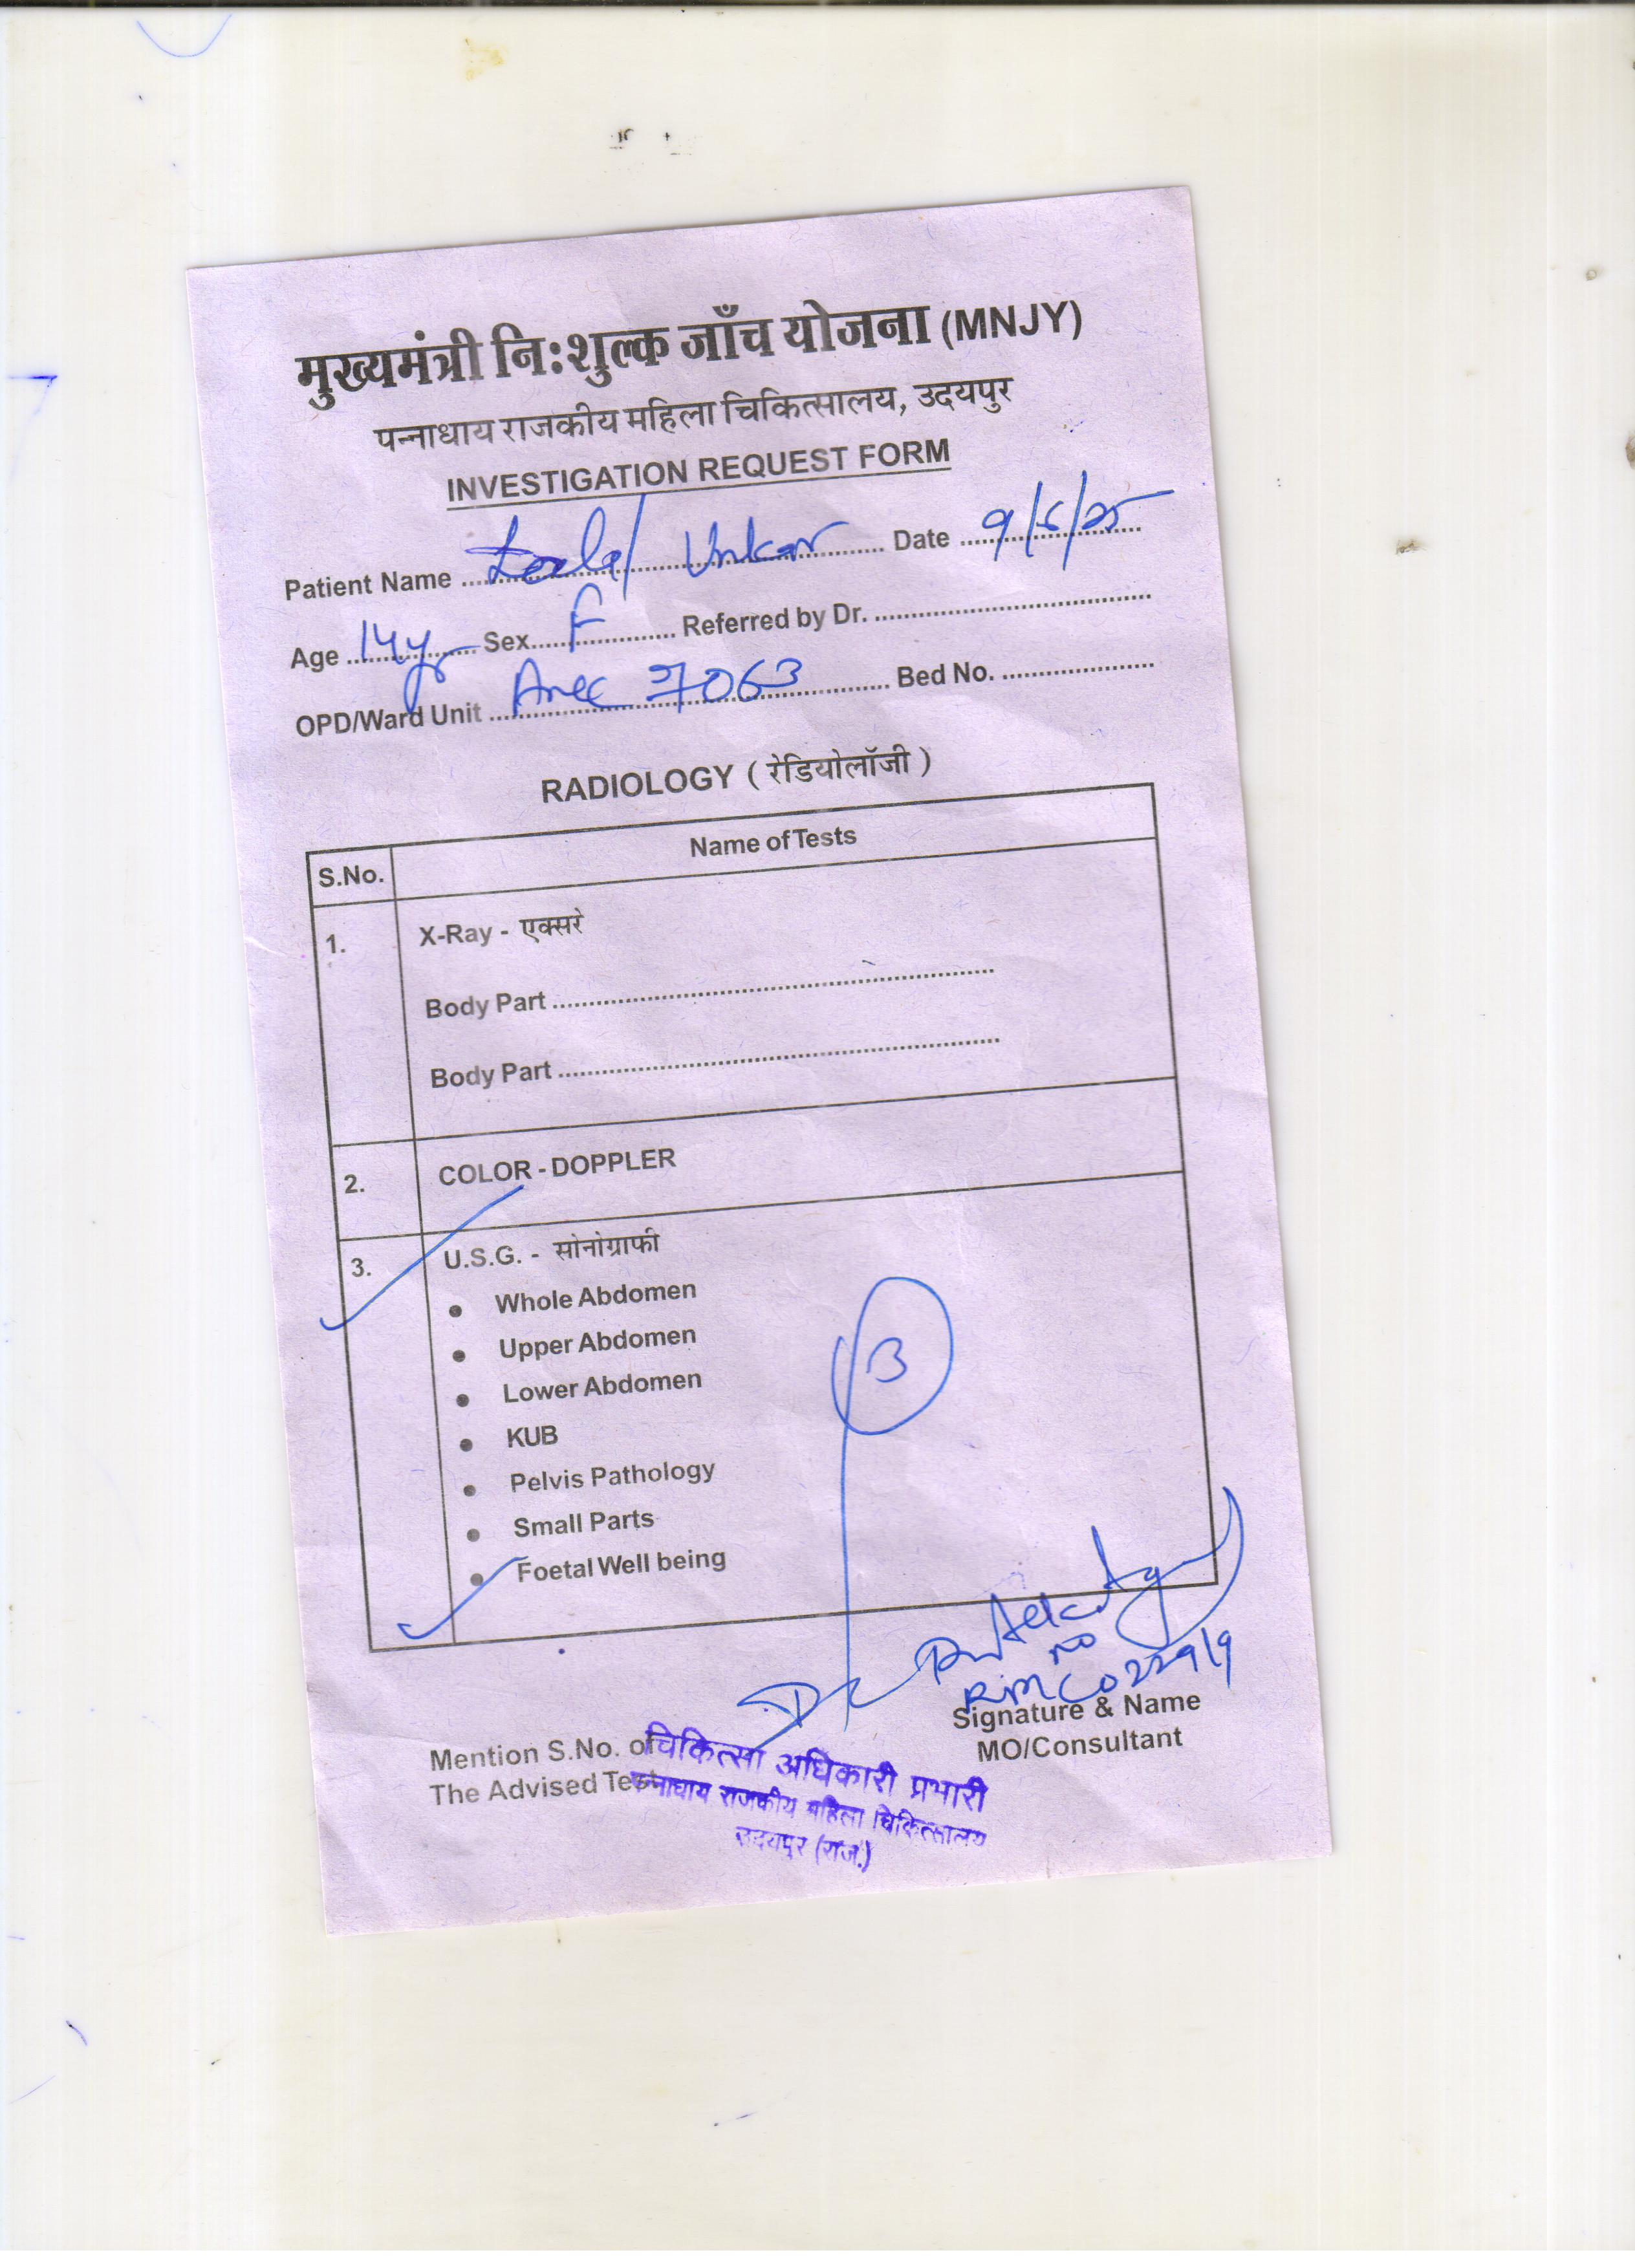 मुख्यमंत्री निःशुल्क जाँच योजना (MNJY)
पन्नाधाय राजकीय महिला चिकित्सालय, उदयपुर
INVESTIGATION REQUEST FORM
Patient Name ........ Unkar ........ Date 9/5/25
Age 14yr Sex F Referred by Dr. ........
OPD/Ward Unit ........ 37063 ........ Bed No. ........
RADIOLOGY ( रेडियोलॉजी )
S.No. Name of Tests
1. X-Ray - एक्सरे
Body Part ........
Body Part ........
2. COLOR - DOPPLER
3. U.S.G. - सोनोग्राफी
• Whole Abdomen
• Upper Abdomen
• Lower Abdomen
3
• KUB
• Pelvis Pathology
• Small Parts
• Foetal Well being
Dr
RMC 022919
Signature & Name
MO/Consultant
Mention S.No. of
The Advised Test
चिकित्सा अधिकारी प्रभारी
पन्नाधाय राजकीय महिला चिकित्सालय
उदयपुर (राज.)